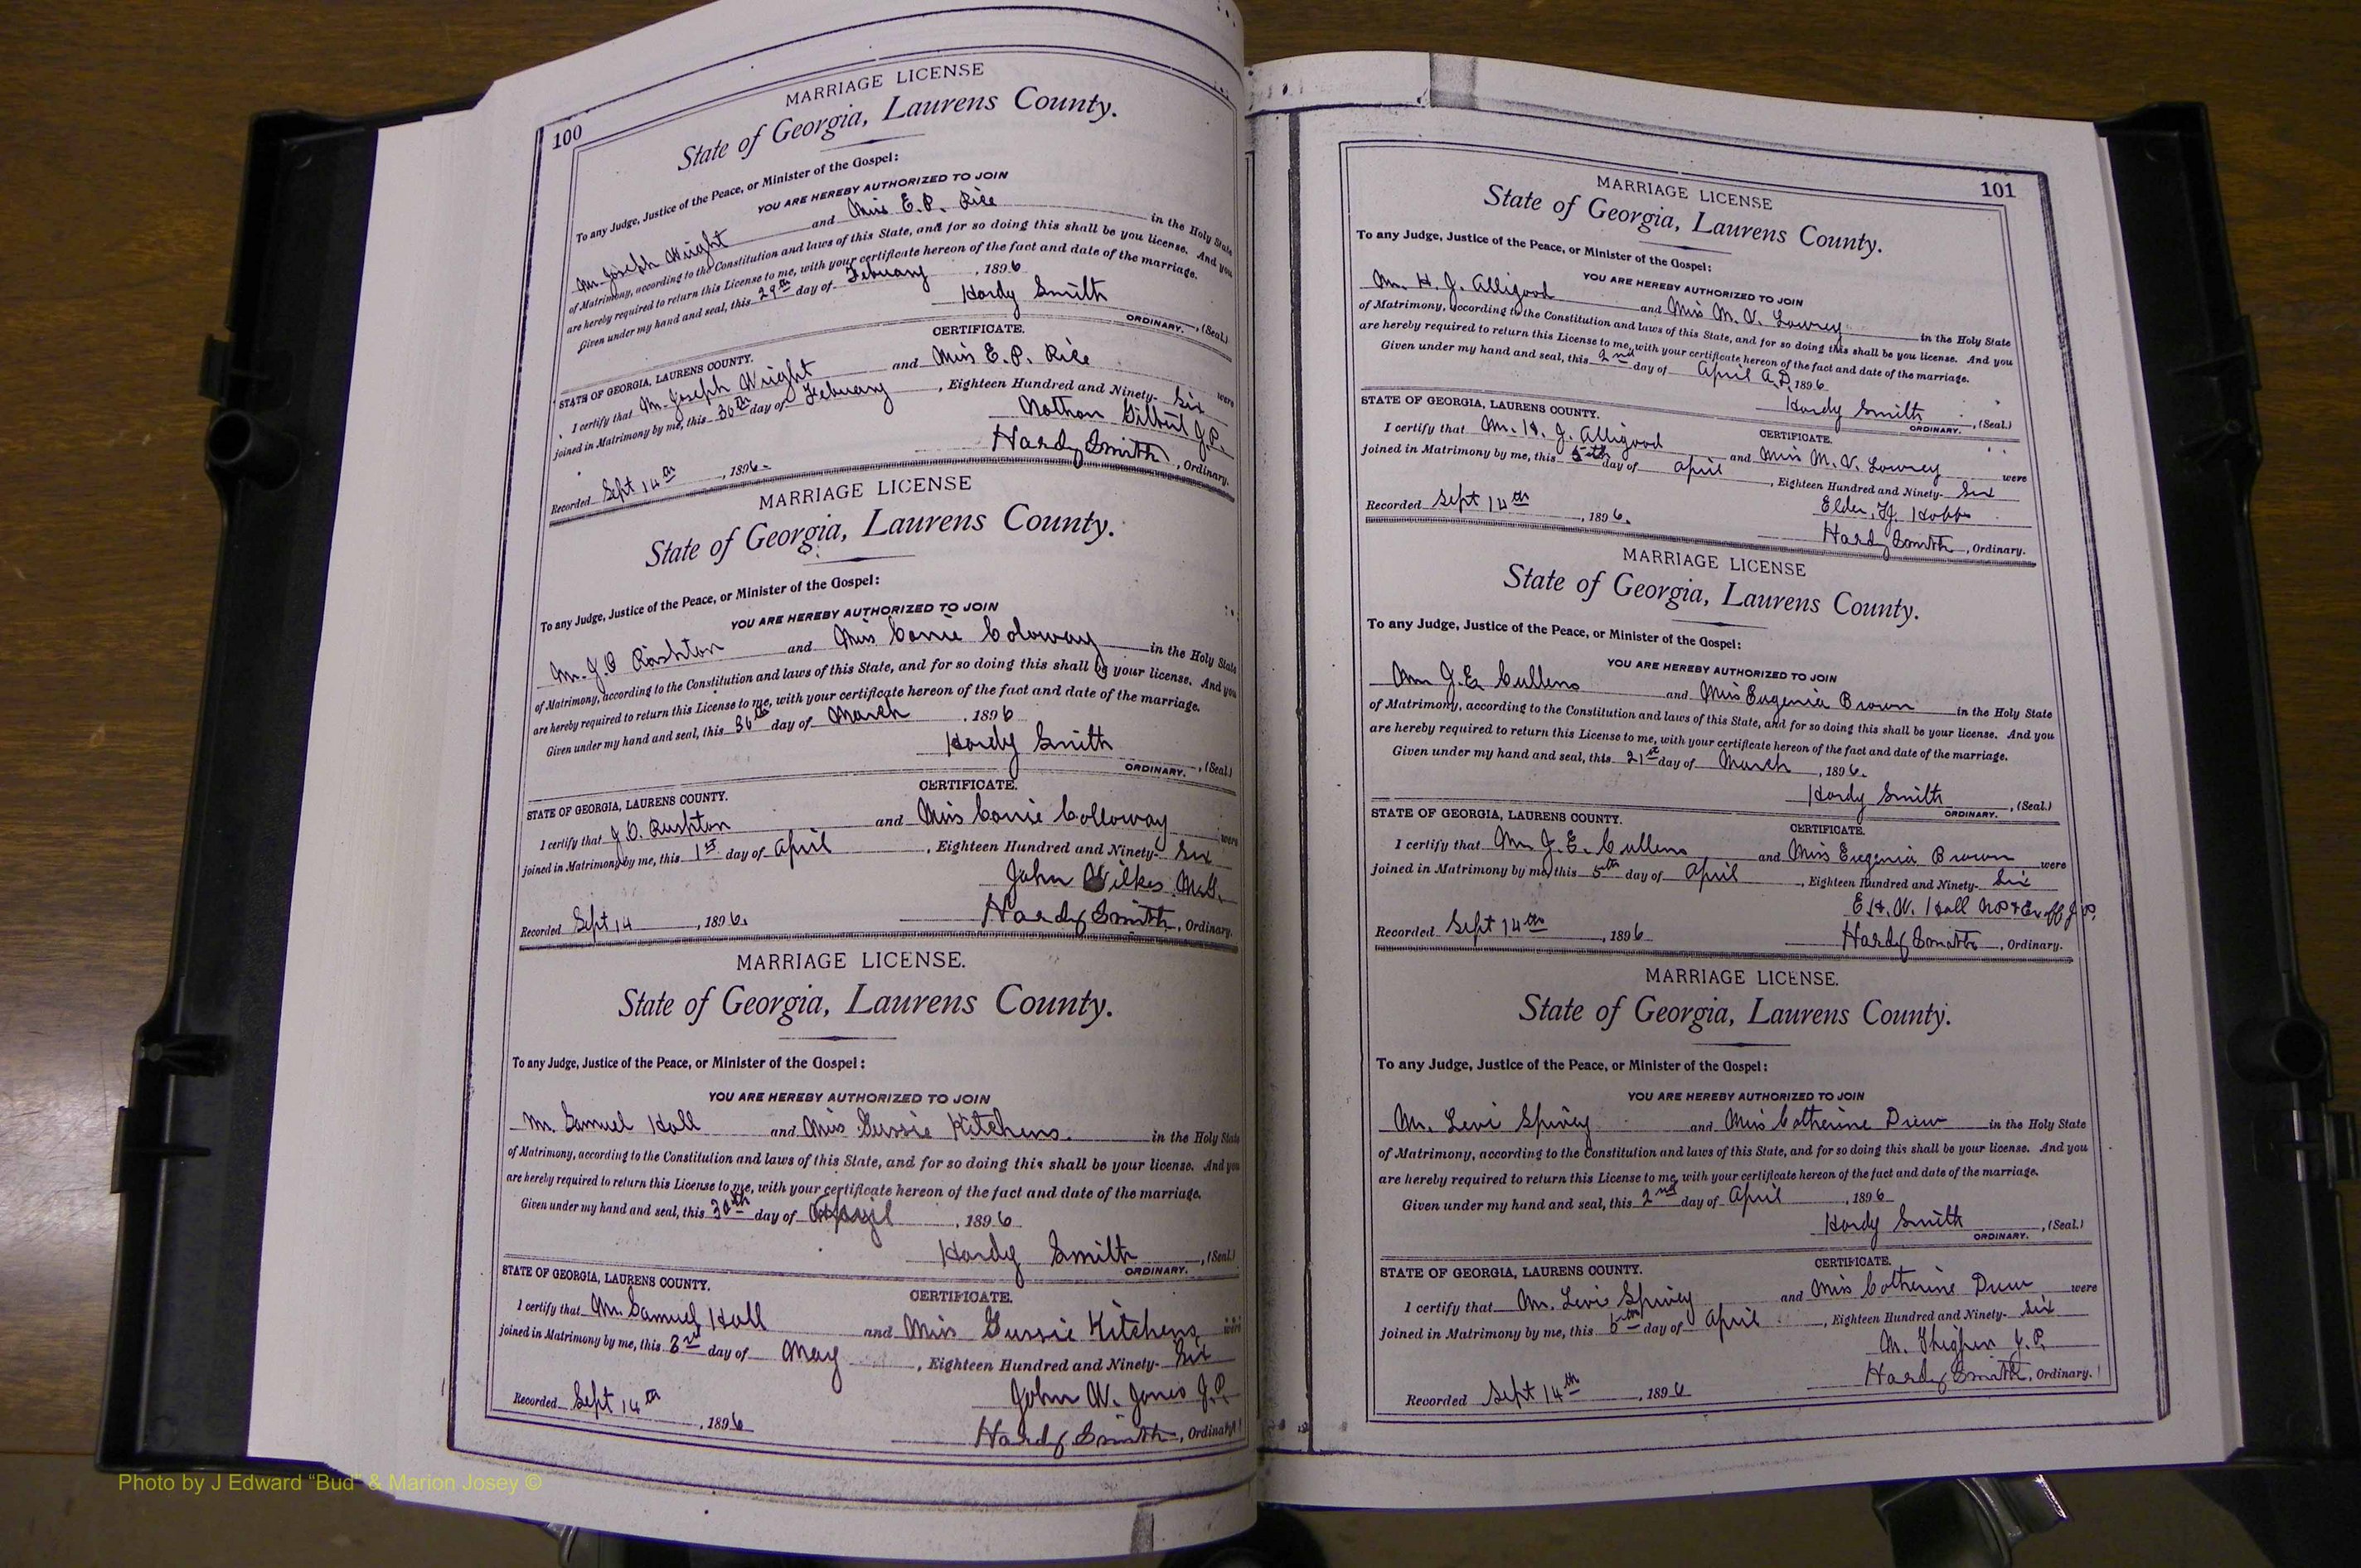 100
MARRIAGE LICENSE
State of Georgia, Laurens County.
To any Judge, Justice of the Peace, or Minister of the Gospel:
YOU ARE HEREBY AUTHORIZED TO JOIN
Mr. Joseph Wright and Miss E. P. Rice in the Holy State
of Matrimony, according to the Constitution and laws of this State, and for so doing this shall be you license. And you
are hereby required to return this License to me, with your certificate hereon of the fact and date of the marriage.
Given under my hand and seal, this 29th day of February, 1896
Hardy Smith
ORDINARY. , (Seal.)
STATE OF GEORGIA, LAURENS COUNTY. CERTIFICATE.
I certify that Mr. Joseph Wright and Miss E. P. Rice were
joined in Matrimony by me, this 30th day of February, Eighteen Hundred and Ninety- Six
Nathan Gilbert J.P.
Recorded Sept 14th, 1896. Hardy Smith, Ordinary.
MARRIAGE LICENSE
State of Georgia, Laurens County.
To any Judge, Justice of the Peace, or Minister of the Gospel:
YOU ARE HEREBY AUTHORIZED TO JOIN
Mr. J. O Rushton and Miss Connie Coloway in the Holy State
of Matrimony, according to the Constitution and laws of this State, and for so doing this shall be your license. And you
are hereby required to return this License to me, with your certificate hereon of the fact and date of the marriage.
Given under my hand and seal, this 30th day of March, 1896
Hardy Smith
ORDINARY. , (Seal.)
STATE OF GEORGIA, LAURENS COUNTY. CERTIFICATE.
I certify that J. O. Rushton and Miss Connie Colloway were
joined in Matrimony by me, this 1st day of April, Eighteen Hundred and Ninety- Six
John Wilkes
Recorded Sept 14, 1896. Hardy Smith, Ordinary.
MARRIAGE LICENSE.
State of Georgia, Laurens County.
To any Judge, Justice of the Peace, or Minister of the Gospel:
YOU ARE HEREBY AUTHORIZED TO JOIN
Mr. Samuel Hall and Miss Gussie Kitchens. in the Holy State
of Matrimony, according to the Constitution and laws of this State, and for so doing this shall be your license. And you
are hereby required to return this License to me, with your certificate hereon of the fact and date of the marriage.
Given under my hand and seal, this 30th day of April, 1896
Hardy Smith, (Seal.)
ORDINARY.
STATE OF GEORGIA, LAURENS COUNTY. CERTIFICATE.
I certify that Mr. Samuel Hall and Miss Gussie Kitchens were
joined in Matrimony by me, this 3rd day of May, Eighteen Hundred and Ninety- Six
John W. Jones J.P.
Recorded Sept 14th, 1896 Hardy Smith, Ordinary
101
MARRIAGE LICENSE
State of Georgia, Laurens County.
To any Judge, Justice of the Peace, or Minister of the Gospel:
YOU ARE HEREBY AUTHORIZED TO JOIN
Mr. H. J. Alligood and Miss M. V. Lowrey in the Holy State
of Matrimony, according to the Constitution and laws of this State, and for so doing this shall be you license. And you
are hereby required to return this License to me, with your certificate hereon of the fact and date of the marriage.
Given under my hand and seal, this 2nd day of April A.D, 1896
Hardy Smith, (Seal.)
ORDINARY.
STATE OF GEORGIA, LAURENS COUNTY. CERTIFICATE.
I certify that Mr. H. J. Alligood and Miss M. V. Lowrey were
joined in Matrimony by me, this 5th day of April, Eighteen Hundred and Ninety- Six
Elder, Hobbs
Recorded Sept 14th, 1896. Hardy Smith, Ordinary.
MARRIAGE LICENSE
State of Georgia, Laurens County.
To any Judge, Justice of the Peace, or Minister of the Gospel:
YOU ARE HEREBY AUTHORIZED TO JOIN
Mr J. E. Cullens and Miss Eugenia Brown in the Holy State
of Matrimony, according to the Constitution and laws of this State, and for so doing this shall be your license. And you
are hereby required to return this License to me, with your certificate hereon of the fact and date of the marriage.
Given under my hand and seal, this 21st day of March, 1896.
Hardy Smith, (Seal.)
ORDINARY.
STATE OF GEORGIA, LAURENS COUNTY. CERTIFICATE.
I certify that Mr. J. E. Cullens and Miss Eugenia Brown were
joined in Matrimony by me, this 5th day of April, Eighteen Hundred and Ninety- Six
E. H. W. Hall NP & Ex off J.P.
Recorded Sept 14th, 1896 Hardy Smith, Ordinary.
MARRIAGE LICENSE.
State of Georgia, Laurens County.
To any Judge, Justice of the Peace, or Minister of the Gospel:
YOU ARE HEREBY AUTHORIZED TO JOIN
Mr. Levi Spivey and Miss Catherine Drew in the Holy State
of Matrimony, according to the Constitution and laws of this State, and for so doing this shall be your license. And you
are hereby required to return this License to me, with your certificate hereon of the fact and date of the marriage.
Given under my hand and seal, this 2nd day of April, 1896
Hardy Smith, (Seal.)
ORDINARY.
STATE OF GEORGIA, LAURENS COUNTY. CERTIFICATE.
I certify that Mr. Levi Spivey and Miss Catherine Drew were
joined in Matrimony by me, this day of April, Eighteen Hundred and Ninety- Six
M. Thigpen J. P.
Recorded Sept 14th, 1896 Hardy Smith, Ordinary.
Photo by J Edward “Bud” & Marion Josey ©